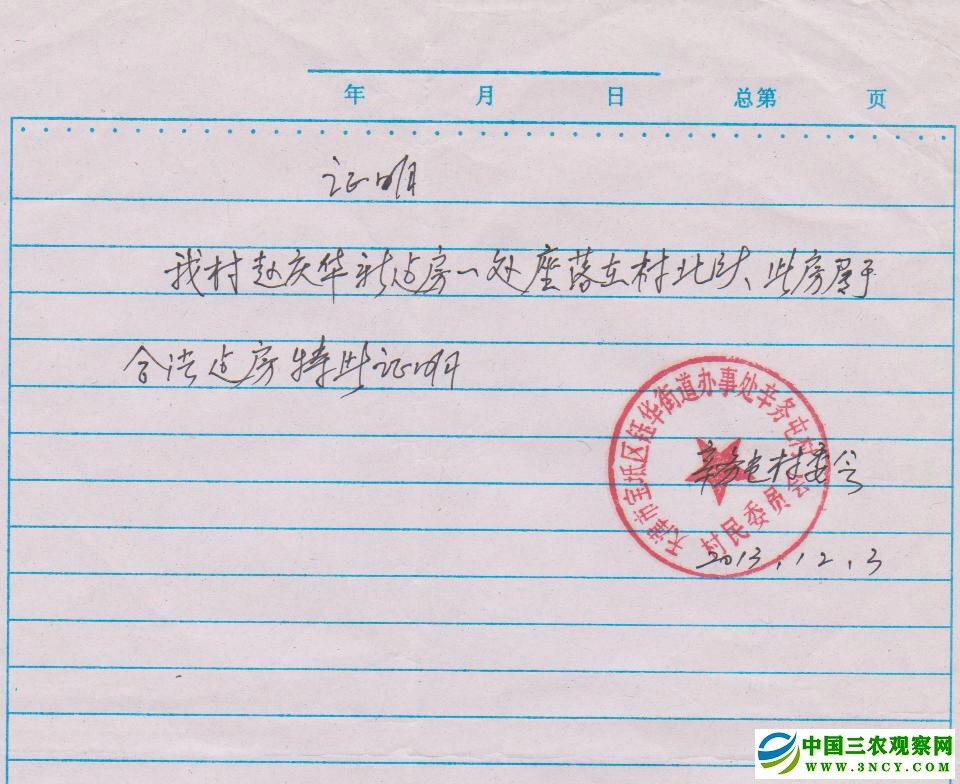 年 月 日 总第 页
证明
我村赵庆华新占房一处座落在村北头、此房属于
合法占房特此证明
天津市宝坻区钰华街道办事处辛务屯村
村民委员会
辛务屯村委会
2013.12.3
中国三农观察网
WWW.3NCY.COM